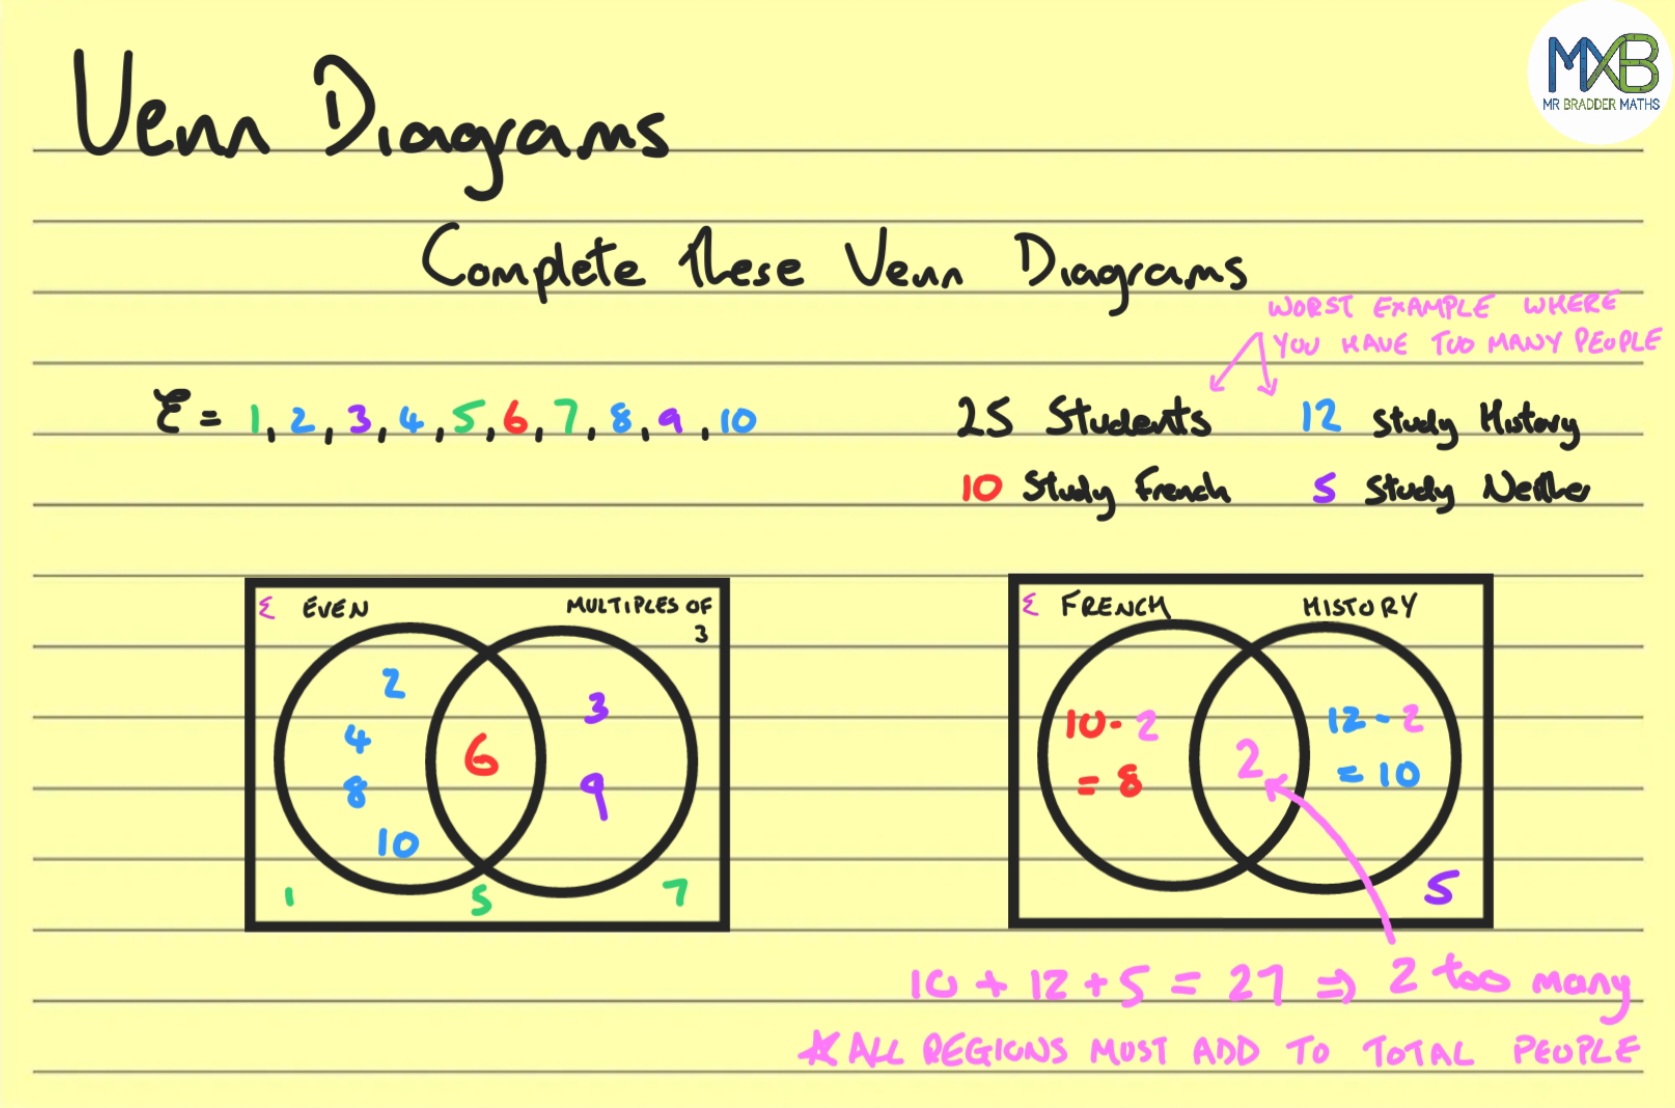 Venn Diagrams
MXB
MR BRADDER MATHS
Complete These Venn Diagrams
WORST EXAMPLE WHERE
YOU HAVE TOO MANY PEOPLE
ξ = 1, 2, 3, 4, 5, 6, 7, 8, 9, 10
25 Students 12 Study History
10 Study French 5 Study Neither
ξ EVEN MULTIPLES OF
3
2
4
8
10
6
3
9
1 5 7
ξ FRENCH HISTORY
10-2
= 8
2
12-2
= 10
5
10 + 12 + 5 = 27 ⇒ 2 too many
* ALL REGIONS MUST ADD TO TOTAL PEOPLE